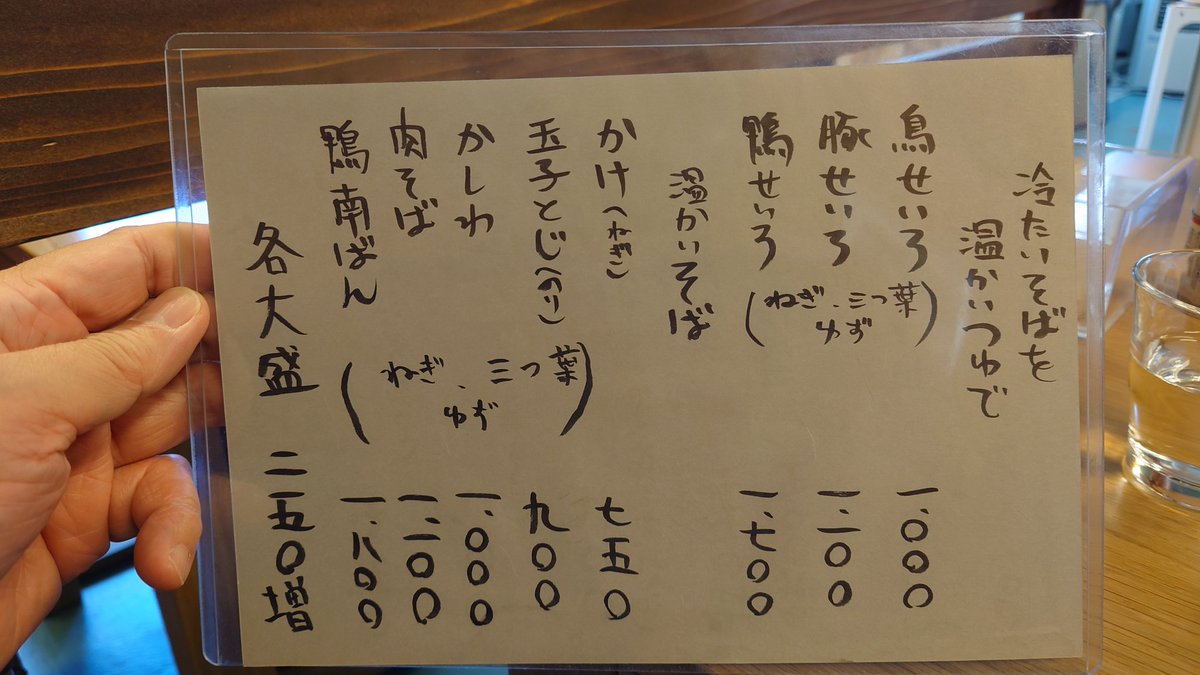 冷たいそばを
温かいつゆで
鳥せいろ 一、〇〇〇
豚せいろ 一、一〇〇
鴨せいろ 一、七〇〇
(ねぎ、三つ葉
ゆず)
温かいそば
かけ(ねぎ) 七五〇
玉子とじ(のり) 九〇〇
かしわ 一、〇〇〇
肉そば 一、二〇〇
鴨南ばん 一、八〇〇
(ねぎ、三つ葉
ゆず)
各大盛 二五〇増